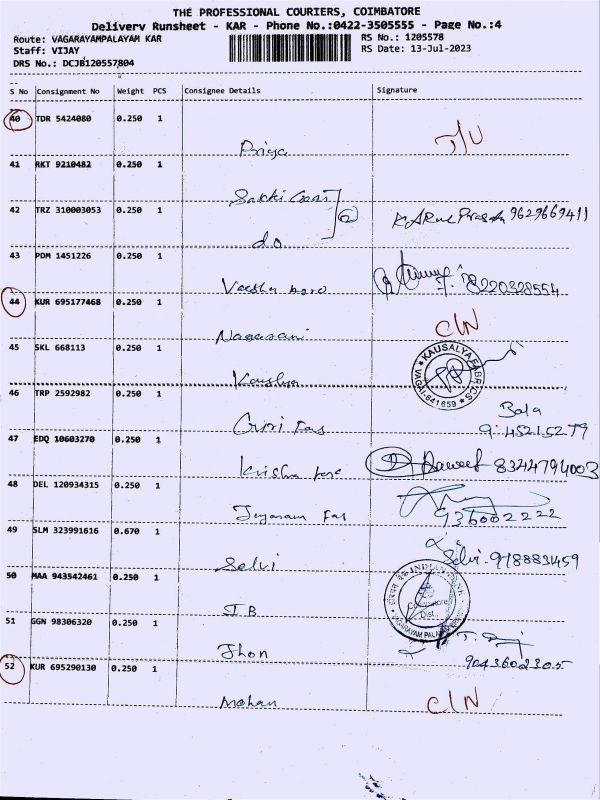 THE PROFESSIONAL COURIERS, COIMBATORE
Delivery Runsheet - KAR - Phone No.:0422-3505555 - Page No.:4
Route: VAGARAYAMPALAYAM KAR RS No.: 1205578
Staff: VIJAY RS Date: 13-Jul-2023
DRS No.: DCJB120557804
S No Consignment No Weight PCS Consignee Details Signature
40 TDR 5424080 0.250 1
Priya
41 RKT 9210482 0.250 1
Sakthi
42 TRZ 310003053 0.250 1 9629669411
do
43 PDM 1451226 0.250 1 8220328554
44 KUR 695177468 0.250 1 C/N
45 SKL 668113 0.250 1 KAUSALYA FABRICS
VAGAI-641659
46 TRP 2592982 0.250 1 Bala
47 EDQ 10603270 0.250 1 8344794003
48 DEL 120934315 0.250 1 936002222
49 SLM 323991616 0.670 1
Selvi Selvi
50 MAA 943542461 0.250 1 INDIAN BANK
Coimbatore
Dist.
51 GGN 98306320 0.250 1
Jhon 9043602305
52 KUR 695290130 0.250 1
Mohan C/N